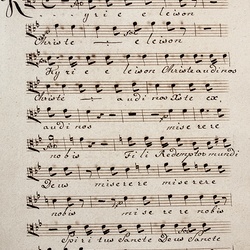 Kyrie eleison
Christe eleison
Kyrie eleison Christe audi nos
Christe audi nos
audi nos miserere
nobis Fili Redemptor mundi
Deus miserere miserere
nobis miserere nobis
Spiritus Sancte Deus Sancte